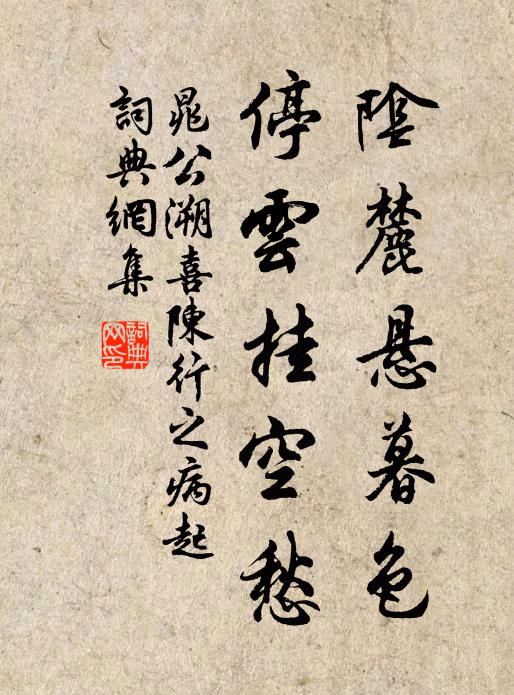 陰麓悬暮色
停雲挂空愁
晁公溯喜陳行之病起
詞典網集
詞典
网印